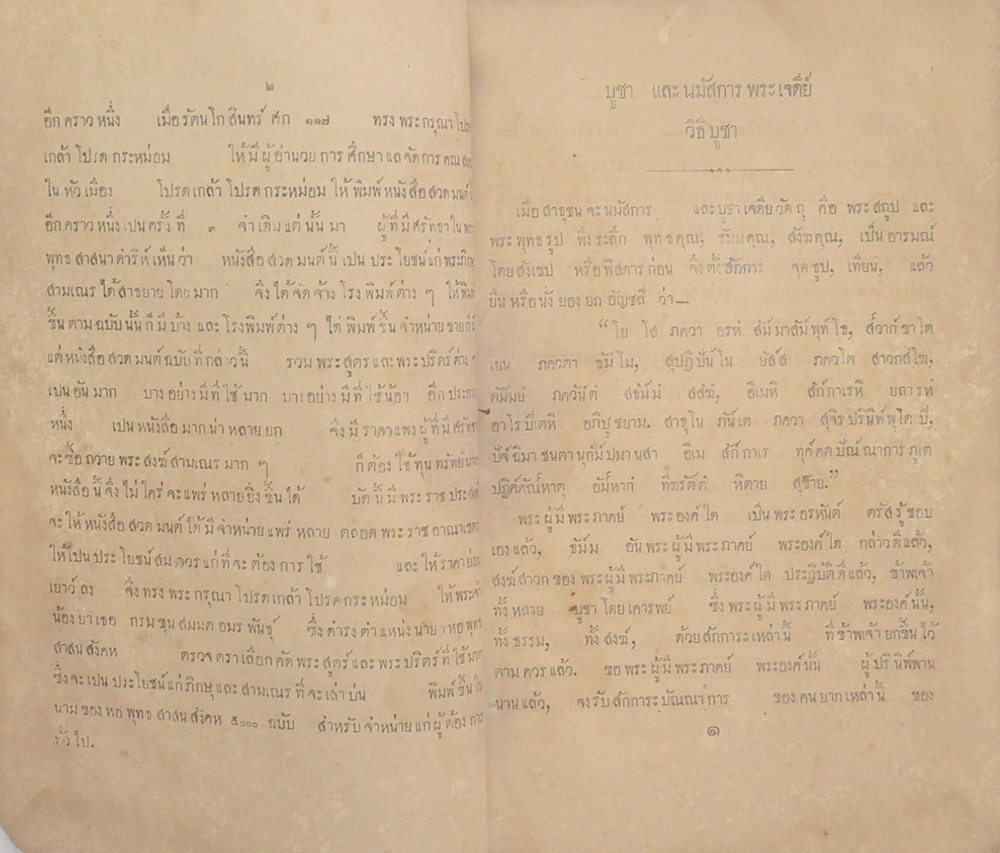 ๒
อีก คราว หนึ่ง เมื่อ รัตน โก สินทร์ ศก ๑๑๗ ทรง พระ กรุณา โปรด
เกล้า โปรด กระหม่อม ให้ มี ผู้ อำนวย การ ศึกษา แล จัด การ คณ สงฆ์
ใน หัว เมือง โปรด เกล้า โปรด กระหม่อม ให้ พิมพ์ หนังสือ สวด มนต์
อีก คราว หนึ่ง เปน ครั้ง ที่ ๓ จำ เดิม แต่ นั้น มา ผู้ ที่ มี ศรัทธา ใน พระ
พุทธ สาสนา ดำริห์ เห็น ว่า หนังสือ สวด มนต์ นี้ เปน ประ โยชน์ แก่ พระภิกษุ
สามเณร ได้ สาธยาย โดย มาก จึง ได้ จัด จ้าง โรง พิมพ์ ต่าง ๆ ให้ พิมพ์
ขึ้น ตาม ฉบับ นั้น ก็ มี บ้าง และ โรงพิมพ์ ต่าง ๆ ได้ พิมพ์ ขึ้น จำหน่าย ขาย ก็ มี
แต่ หนังสือ สวด มนต์ ฉบับ ที่ กล่าว นี้ รวม พระ สูตร และ พระ ปริตร์ ต่าง ๆ
เปน อัน มาก บาง อย่าง มี ที่ ใช้ มาก บาง อย่าง มี ที่ ใช้ น้อย อีก ประการ
หนึ่ง เปน หนังสือ มาก น่า หลาย ยก จึง มี ราคา แพง ผู้ ที่ มี ศรัทธา
จะ ซื้อ ถวาย พระ สงฆ์ สามเณร มาก ๆ ก็ ต้อง ใช้ ทุน ทรัพย์ มาก
หนังสือ นี้ จึง ไม่ ใคร่ จะ แพร่ หลาย ยิ่ง ขึ้น ได้ บัด นี้ มี พระ ราช ประสงค์
จะ ให้ หนังสือ สวด มนต์ ได้ มี จำหน่าย แพร่ หลาย ตลอด พระ ราช อาณาเขตร
ให้ เปน ประ โยชน์ สม ควร แก่ ที่ จะ ต้อง การ ใช้ และ ให้ ราคา ย่อม
เยาว์ ลง จึง ทรง พระ กรุณา โปรด เกล้า โปรด กระ หม่อม ให้ พระเจ้า
น้อง ยา เธอ กรม ขุน สมมต อมร พันธุ์ ซึ่ง ดำรง ตำ แหน่ง นายา หอ พุทธ
สาสน สังคห ตรวจ ตรา เลือก คัด พระ สูตร์ และ พระ ปริตร์ ที่ ใช้ มาก
ซึ่ง จะ เปน ประโยชน์ แก่ ภิกษุ และ สามเณร ที่ จะ เล่า บ่น พิมพ์ ขึ้น ใน
นาม ของ หอ พุทธ สาสน สังคห ๕๐๐๐ ฉบับ สำหรับ จำหน่าย แก่ ผู้ ต้อง การ
ทั่ว ไป.
บูชา และ นมัสการ พระ เจดีย์
วิธี บูชา
เมื่อ สาธุชน จะ นมัสการ และ บูชา เจดีย วัต ถุ คือ พระ สถูป และ
พระ พุทธ รูป พึง ระลึก พุทธ คุณ, ธัมม คุณ, สังฆ คุณ, เป็น อารมณ์
โดย สังเขป หรือ พิสดาร ก่อน จึง ตั้ง สักการ จุด ธูป, เทียน, แล้ว
ยืน หรือ นั่ง ยอง ยก อัญชลี ว่า—
“โย โส ภควา อรหํ สัมมาสัมพุทโธ, สวากขาโต
เยน ภควตา ธัมโม, สุปฏิปันโน ยัสส ภควโต สาวกสังโฆ,
ตัมมยํ ภควันตํ สธัมมํ สสังฆํ, อิเมหิ สักกาเรหิ ยถารหํ
อาโรปิเตหิ อภิปูชยาม. สาธุโน ภันเต ภควา สุจิร ปรินิพพุโต ปิ,
ปัจฉิมา ชนตา นุกัมปมานสา อิเม สักกาเร ทุคคต ปัณณาการ ภูเต
ปฏิคคัณหาตุ อัมหากํ ทีฆรัตตํ หิตาย สุขาย.”
พระ ผู้ มี พระ ภาคย์ พระองค์ ใด เป็น พระ อรหันต์ ตรัส รู้ ชอบ
เอง แล้ว, ธัมม อัน พระ ผู้ มี พระ ภาคย์ พระองค์ ใด กล่าว ดี แล้ว,
สงฆ์ สาวก ของ พระ ผู้ มี พระ ภาคย์ พระองค์ ใด ประฏิบัติ ดี แล้ว, ข้าพเจ้า
ทั้ง หลาย บูชา โดย เคารพย์ ซึ่ง พระ ผู้ มี พระ ภาคย์ พระองค์ นั้น,
ทั้ง ธรรม, ทั้ง สงฆ์, ด้วย สักการะ เหล่า นี้ ที่ ข้าพเจ้า ยก ขึ้น ไว้
ตาม ควร แล้ว. ขอ พระ ผู้ มี พระ ภาคย์ พระองค์ นั้น ผู้ ปรินิพพาน
นาน แล้ว, จง รับ สักการะ บัณณาการ ของ คน ยาก เหล่า นี้ ของ
๑